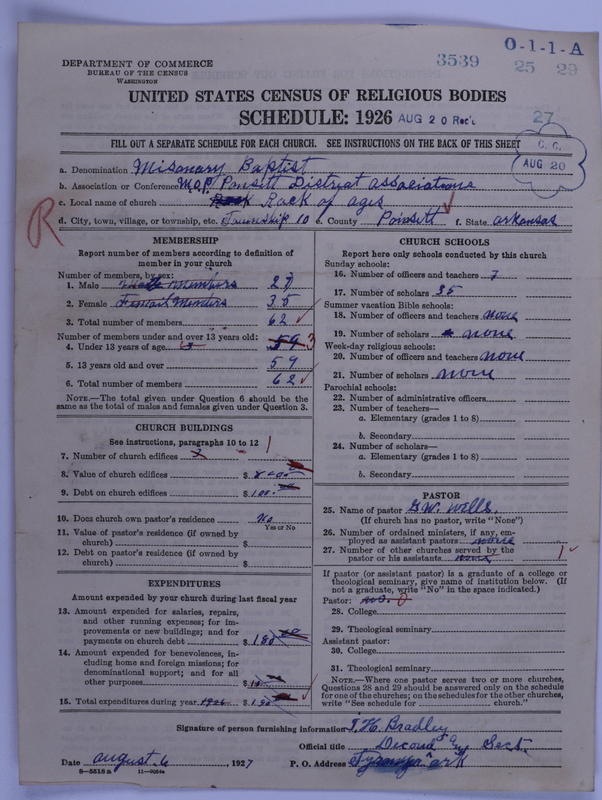 O-1-1-A
3539
25 29
DEPARTMENT OF COMMERCE
BUREAU OF THE CENSUS
WASHINGTON
UNITED STATES CENSUS OF RELIGIOUS BODIES
SCHEDULE: 1926 AUG 20 Rec'd
27
FILL OUT A SEPARATE SCHEDULE FOR EACH CHURCH. SEE INSTRUCTIONS ON THE BACK OF THIS SHEET
C. C.
AUG 20
a. Denomination Misonary Baptist
b. Association or Conference M.O.P. Ponsett District associations
c. Local name of church Rock of ages
d. City, town, village, or township, etc. Township 10 e. County Ponsett f. State arkansas
R
MEMBERSHIP
Report number of members according to definition of member in your church
Number of members, by sex:
1. Male Members 27
2. Female Female Members 35
3. Total number of members 62
Number of members under and over 13 years old:
4. Under 13 years of age 3 59 3
5. 13 years old and over 59
6. Total number of members 62
NOTE.—The total given under Question 6 should be the same as the total of males and females given under Question 3.
CHURCH BUILDINGS
See instructions, paragraphs 10 to 12 1
7. Number of church edifices
8. Value of church edifices $
9. Debt on church edifices $ 100.
10. Does church own pastor's residence No
Yes or No
11. Value of pastor's residence (if owned by church) $
12. Debt on pastor's residence (if owned by church) $
EXPENDITURES
Amount expended by your church during last fiscal year
13. Amount expended for salaries, repairs, and other running expenses; for improvements or new buildings; and for payments on church debt $ 180
14. Amount expended for benevolences, including home and foreign missions; for denominational support; and for all other purposes $ 10
15. Total expenditures during year 1926 $ 190
CHURCH SCHOOLS
Report here only schools conducted by this church
Sunday schools:
16. Number of officers and teachers 7
17. Number of scholars 35
Summer vacation Bible schools:
18. Number of officers and teachers none
19. Number of scholars none
Week-day religious schools:
20. Number of officers and teachers none
21. Number of scholars none
Parochial schools:
22. Number of administrative officers
23. Number of teachers—
a. Elementary (grades 1 to 8)
b. Secondary
24. Number of scholars—
a. Elementary (grades 1 to 8)
b. Secondary
PASTOR
25. Name of pastor G.W. Wells.
(If church has no pastor, write "None")
26. Number of ordained ministers, if any, employed as assistant pastors none
27. Number of other churches served by the pastor or his assistants none 1
If pastor (or assistant pastor) is a graduate of a college or theological seminary, give name of institution below. (If not a graduate, write "No" in the space indicated.)
Pastor: no. 0
28. College
29. Theological seminary
Assistant pastor:
30. College
31. Theological seminary
NOTE.—Where one pastor serves two or more churches, Questions 28 and 29 should be answered only on the schedule for one of the churches; on the schedules for the other churches, write "See schedule for church."
Signature of person furnishing information J.H. Bradley
Official title Secty
Date august 6, 1927 P. O. Address Tyronza ark
8—5518 a 11—9054a